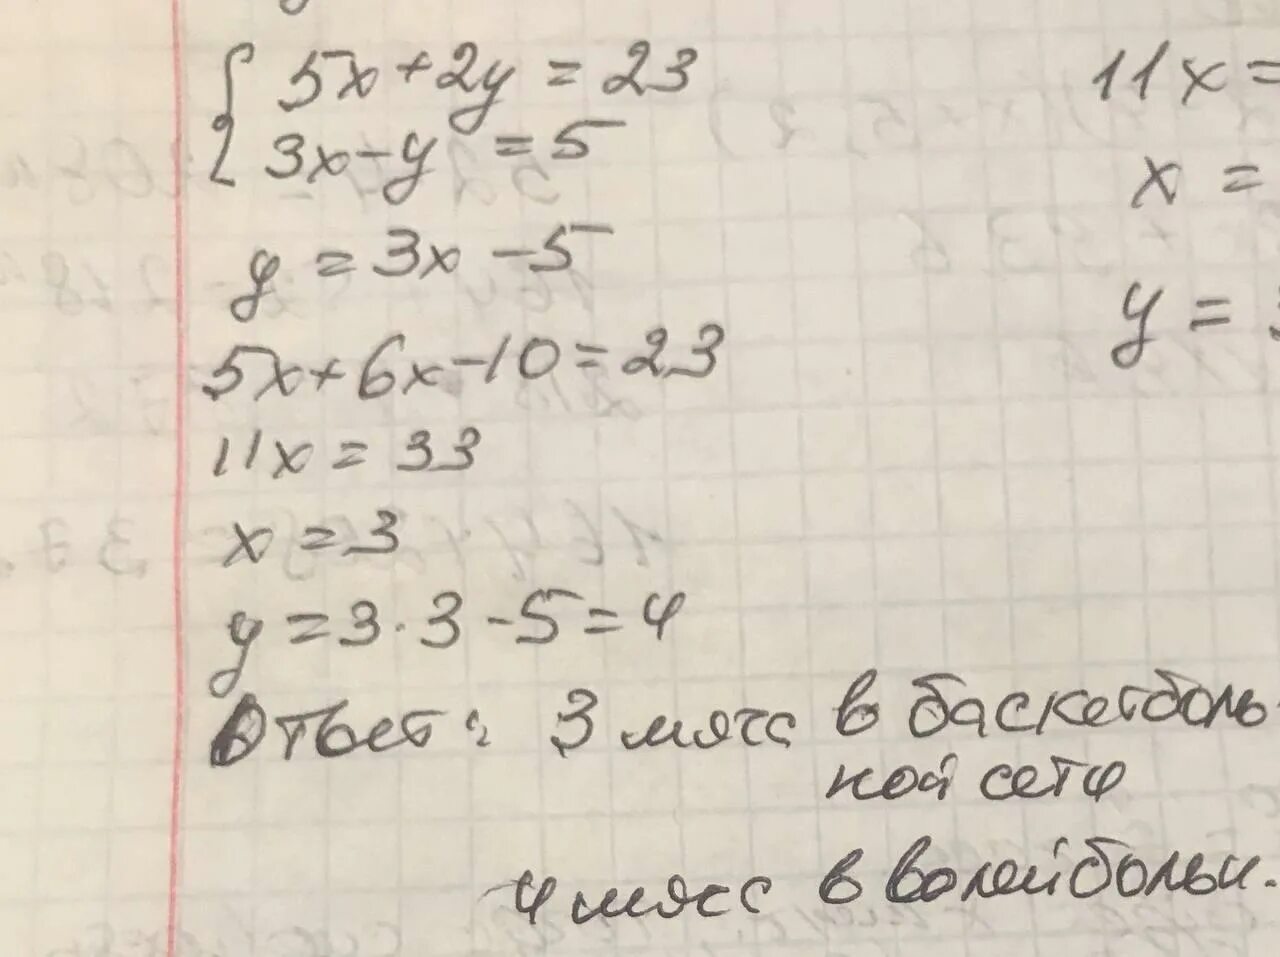 5x+2y=23
3x-y=5
y=3x-5
5x+6x-10=23
11x=33
x=3
y=3·3-5=4
Ответ: 3 мяча в баскетболь-
ной сетке
4 мяча в волейбольн.
11x=
x=
y=